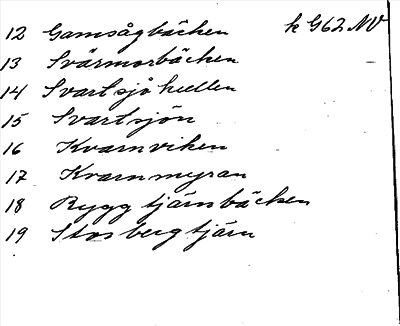 12 Gamsågbäcken k G62 NV
13 Svärmorbäcken
14 Svartsjökullen
15 Svartsjön
16 Kvarnviken
17 Kvarnmyran
18 Ryggtjärnsbäcken
19 Storbergtjärn